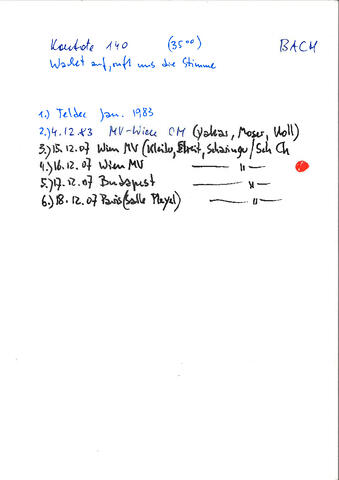 Kantate 140 (35⁰⁰) BACH
Wachet auf, ruft uns die Stimme
1.) Teldec Jan. 1983
2.) 4.12.83 MV-Wien CM (Yakar, Moser, Holl)
3.) 15.12.07 Wien MV (Kleiter, Streit, Scharinger / Sch Ch
4.) 16.12.07 Wien MV — " —
5.) 17.12.07 Budapest — " —
6.) 18.12.07 Paris (Salle Pleyel) — " —